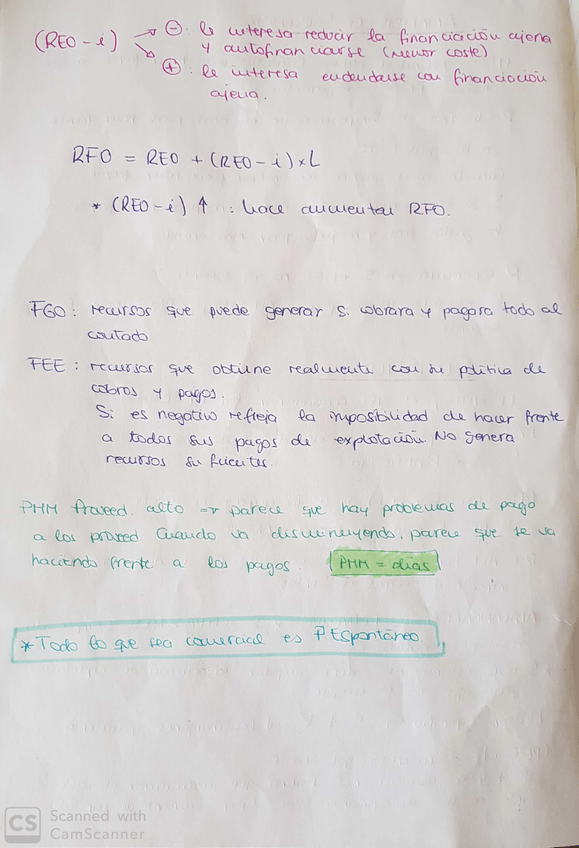 (REO-i) → ⊖: le interesa reducir la financiación ajena
y autofinanciarse (menor coste)
→ ⊕: le interesa endeudarse con financiación
ajena.
RFO = REO + (REO-i)×L
* (REO-i) ↑ : hace aumentar RFO.
FGO: recursos que puede generar si cobrara y pagara todo al
contado
FEE: recursos que obtiene realmente con su política de
cobros y pagos.
Si es negativo refleja la imposibilidad de hacer frente
a todos sus pagos de explotación. No genera
recursos suficientes.
PMM Proveed. alto => parece que hay problemas de pago
a los proveed. Cuando va disminuyendo, parece que se va
haciendo frente a los pagos. PMM = días
* Todo lo que sea comercial es PEspontáneo
CS Scanned with
CamScanner